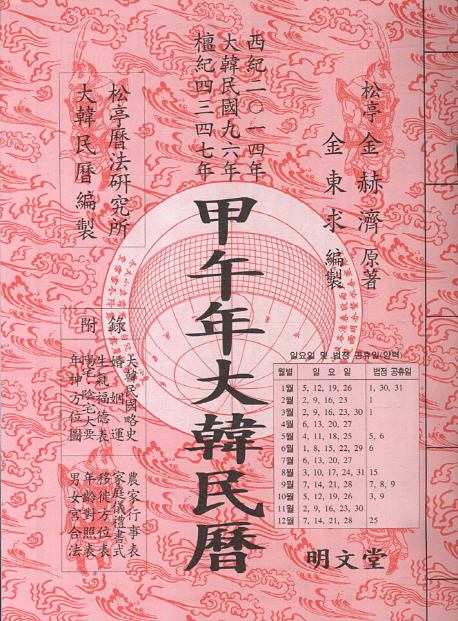 松亭 金赫濟 原著
金東求 編製
西紀二〇一四年
大韓民國九六年
檀紀四三四七年
松亭曆法硏究所
大韓民曆編製
甲午年大韓民曆
附 錄
大韓民國略史
婚姻運
生氣福德表
陽宅·陰宅大要
年神方位圖
農家行事表
家庭儀禮書式
移徙方位表
年齡對照表
男女宮合法
일요일 및 법정 공휴일(양력)
월별 일 요 일 법정 공휴일
1월 5, 12, 19, 26 1, 30, 31
2월 2, 9, 16, 23 1
3월 2, 9, 16, 23, 30 1
4월 6, 13, 20, 27
5월 4, 11, 18, 25 5, 6
6월 1, 8, 15, 22, 29 6
7월 6, 13, 20, 27
8월 3, 10, 17, 24, 31 15
9월 7, 14, 21, 28 7, 8, 9
10월 5, 12, 19, 26 3, 9
11월 2, 9, 16, 23, 30
12월 7, 14, 21, 28 25
明文堂